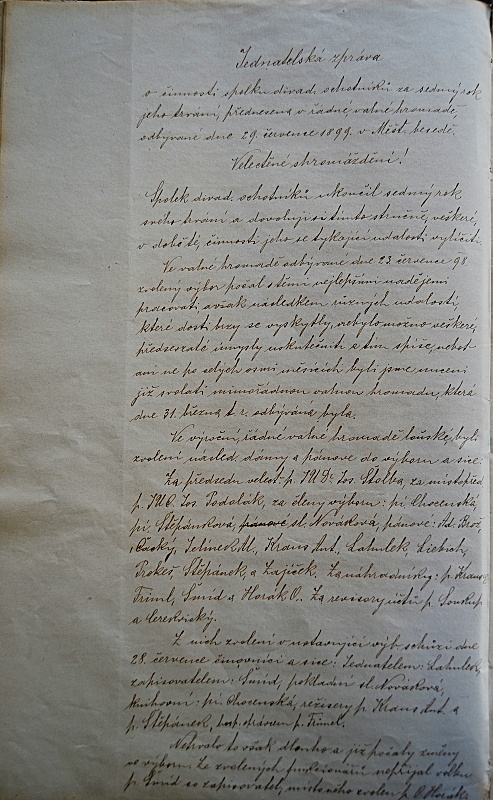 Jednatelská zpráva
o činnosti spolku divad. ochotníků za sedmý rok
jeho trvání, přednesená v řádné valné hromadě,
odbývané dne 29. července 1899 v Měšť. besedě.
Velectěné shromáždění!
Spolek divad. ochotníků ukončil sedmý rok
svého trvání a dovoluji si tímto stručně, veškeré,
v době té, činnosti jeho se týkající udalosti vylíčiti.
Ve valné hromadě odbývané dne 23. července 98
zvolený výbor počal s těmi nejlepšími nadějemi
pracovati avšak následkem různých udalostí,
které dosti brzy se vyskytly, nebylo možno veškeré,
předsevzaté úmysly uskutečniti a tím spíše, neboť
ani ne po celých osmi měsících byli jsme nuceni
již svolati mimořádnou valnou hromadu, která
dne 31. března t. r. odbývána byla.
Ve výroční, řádné valné hromadě loňské, byli
zvoleni násled. dámy a pánové do výboru a sice:
Za předsedu velect. p. JUDr. Jos. Štolba, za místopřed.
p. JUC. Jos. Podolák, za členy výboru: pí. Chocenská,
pí. Štěpánková, pánové sl. Nováková, pánové: Ad. Brož,
Časký, Jelínek Al., Kraus Ant., Lahulek, Liebich,
Prokeš, Štěpánek, a Zajíček. Za náhradníky: p. Kraus
Triml, Šmíd a Horák O. Za revisory účtů p. Soukup
a Cerekvický.
Z nich zvoleni v ustavující výb. schůzi dne
28. července činovníci a sice: Jednatelem: Lahulek,
zapisovatelem: Šmíd, pokladní sl. Nováková,
knihovní: pí. Chocenská, režisery p. Kraus Ant. a
p. Štěpánek, hosp. správcem p. Triml.
Netrvalo to však dlouho a již počaly změny
ve výboru. Ze zvolených funkcionářů nepřijal volbu
p. Šmíd co zapisovatel, místo něho zvolen p. O. Horák.